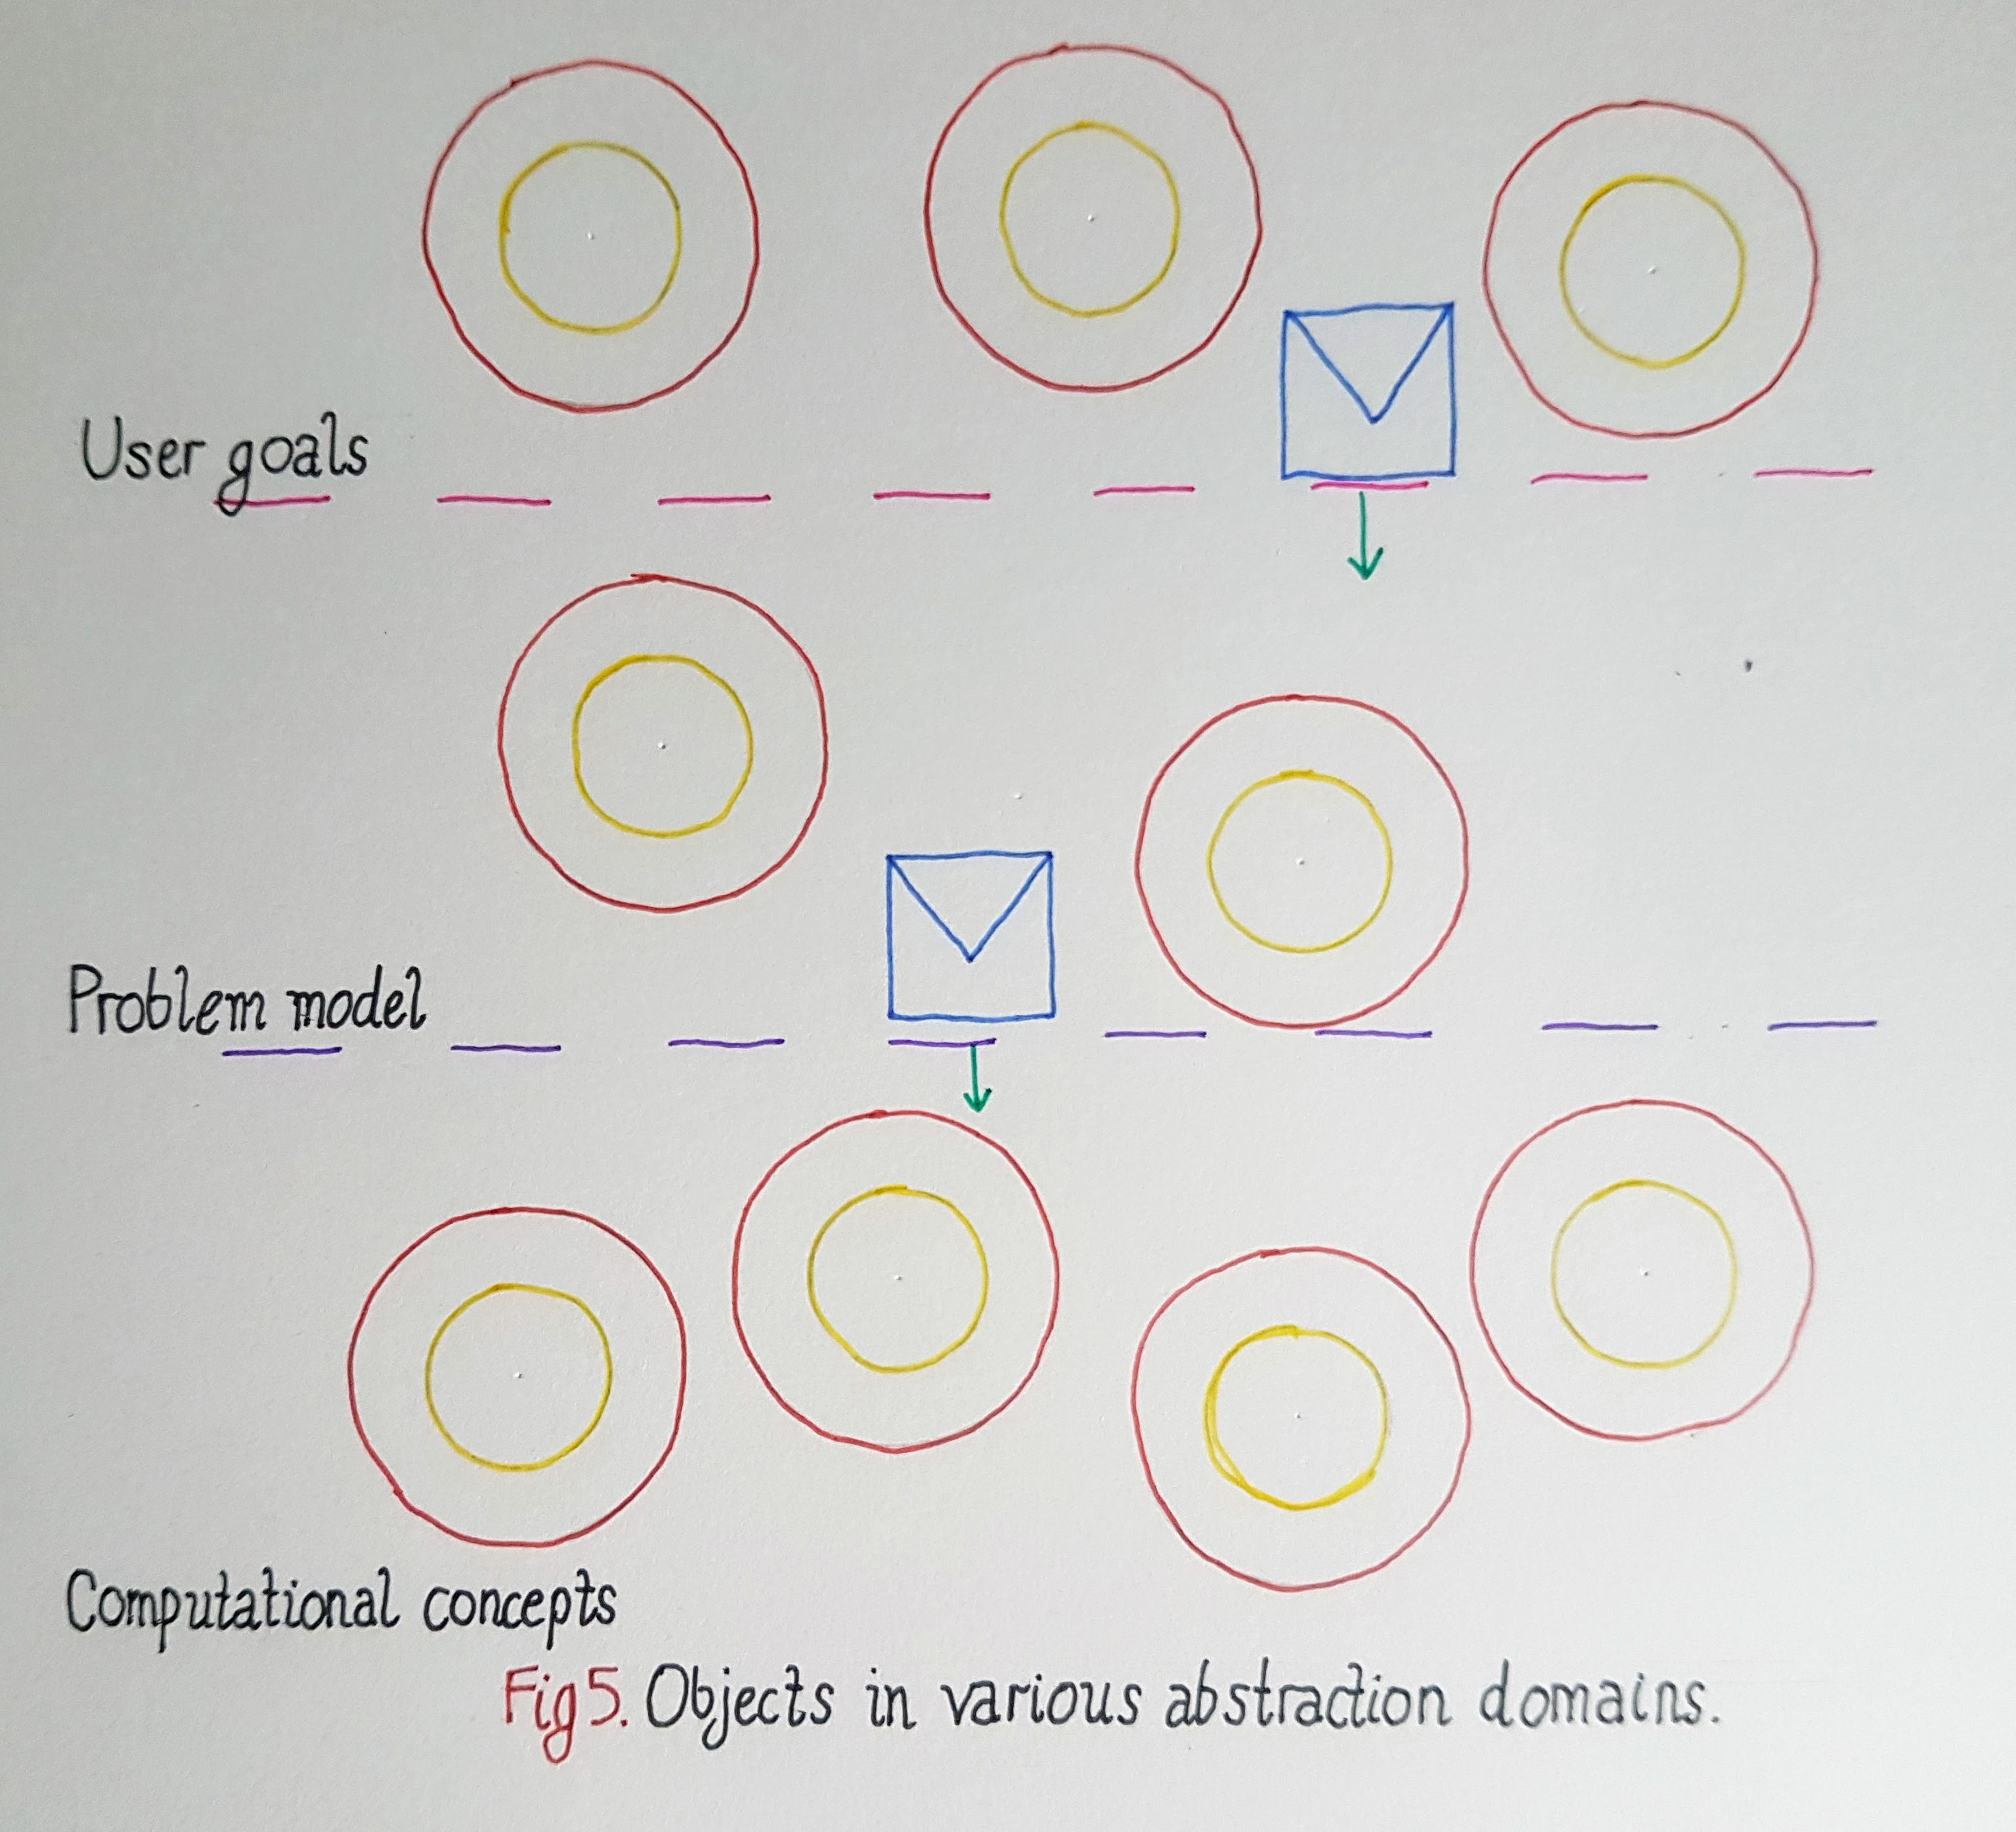 User goals
Problem model
Computational concepts
Fig5. Objects in various abstraction domains.